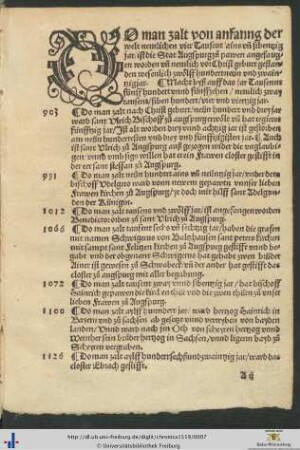 SO man zalt von anfanng der
welt nemlichen vier Tausent / ains vñ sibentzig
jar. ist die Stat Augspurg zů pawen angefaug-
en worden vñ nemlich vor Christ geburt gestann-
den wesenlich zwölff hundert neün vnd zwain-
tzig jar. ¶ Macht bysz auff das jar Tausennt
fünff hundert vnnd fünffzehen / nemlich zway
tausent / siben hundert / vier vnd viertzig jar.
903 ¶ Do man zalt nach Christi geburt / neün hundert vnd drey jar
ward sant Vlrich Bischoff zů augspurg erwölt vñ hat regiert
fünfftzig jar / Ist alt worden drey vnd achtzig jar ist gestorben
am neünhundertsten vnd drey vnd sibentzigisten jar. ¶ Auch
ist sant Vlrich zů Augspurg ausz gezogen wider die vnglaubi-
gen vnnd vmb sig willen hat er ein Frawen closter gestifft in
der eer sant steffan zů Augspurg.
991 ¶ Do man zalt neün hundert ains vñ neüntzig jar / vnder dem
bischoff Vdelgero ward vonn newem gepawen vnnser lieben
Frawen kirchen zů Augspurg / ye doch mit hilff sant Adelgun-
den der Künigin.
1012 ¶ Do man zalt tausend vnd zwölff jar / ist angefangen worden
Benedicter orden zů sant Vlrich zů Augspurg.
1066 ¶ Do man zalt tausent sechs vñ sechtzig jar / haben die grafen
mit namen Schwigerus von Balzhausen sant peters kirchen
mit sampt sant Felitzen kirchen zů Augspurg gestifft vnnd be-
gabt vnd der obgenant Schwigerus hat gehabt zwen brüder
Ainer ist gewesen zů Schwabeck vñ der ander hat gestifft das
closter zů augspurg mit aller begabung.
1072 ¶ Do man zalt tausent zway vnnd sibentzig jar / hat bischoff
Hainrich gepawen die kirch an thür vnd die zwen thürn zů vnser
lieben Frawen zů Augspurg.
1100 ¶ Do man zalt aylff hundert jar / ward hertzog Hainrich in
Bayern vnd zů sachsen ab gesetzt vnnd vertryben von bayden
landen / Vnnd ward nach jm Oth von scheyren hertzog vnnd
Wernher sein brůder hertzog in Sachsen / vnnd ligent bayd zů
Scheyren vergraben.
1126 ¶ Do man zalt aylff hundert sechs vnd zwaintzig jar / ward das
closter Ebrach gestifft.
A ij
http://dl.ub.uni-freiburg.de/diglit/chronica1518/0007
© Universitätsbibliothek Freiburg